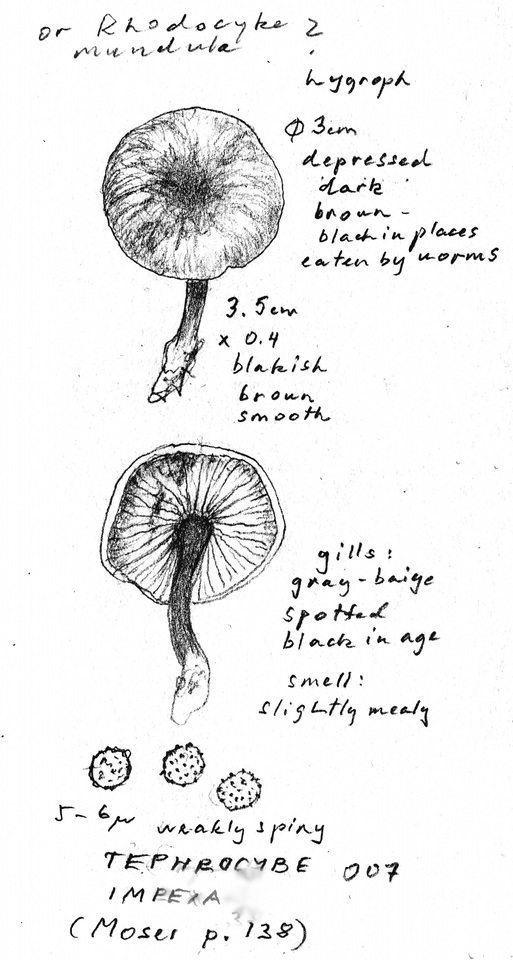 or Rhodocybe ?
mundula
hygroph
Φ 3cm
depressed
dark
broun -
black in places
eaten by worms
3.5cm
x 0.4
blakish
broun
smooth
gills:
gray-baige
spotted
black in age
smell:
slightly mealy
5-6μ weakly spiny
TEPHROCYBE 007
IMPEXA
(Moser p. 138)